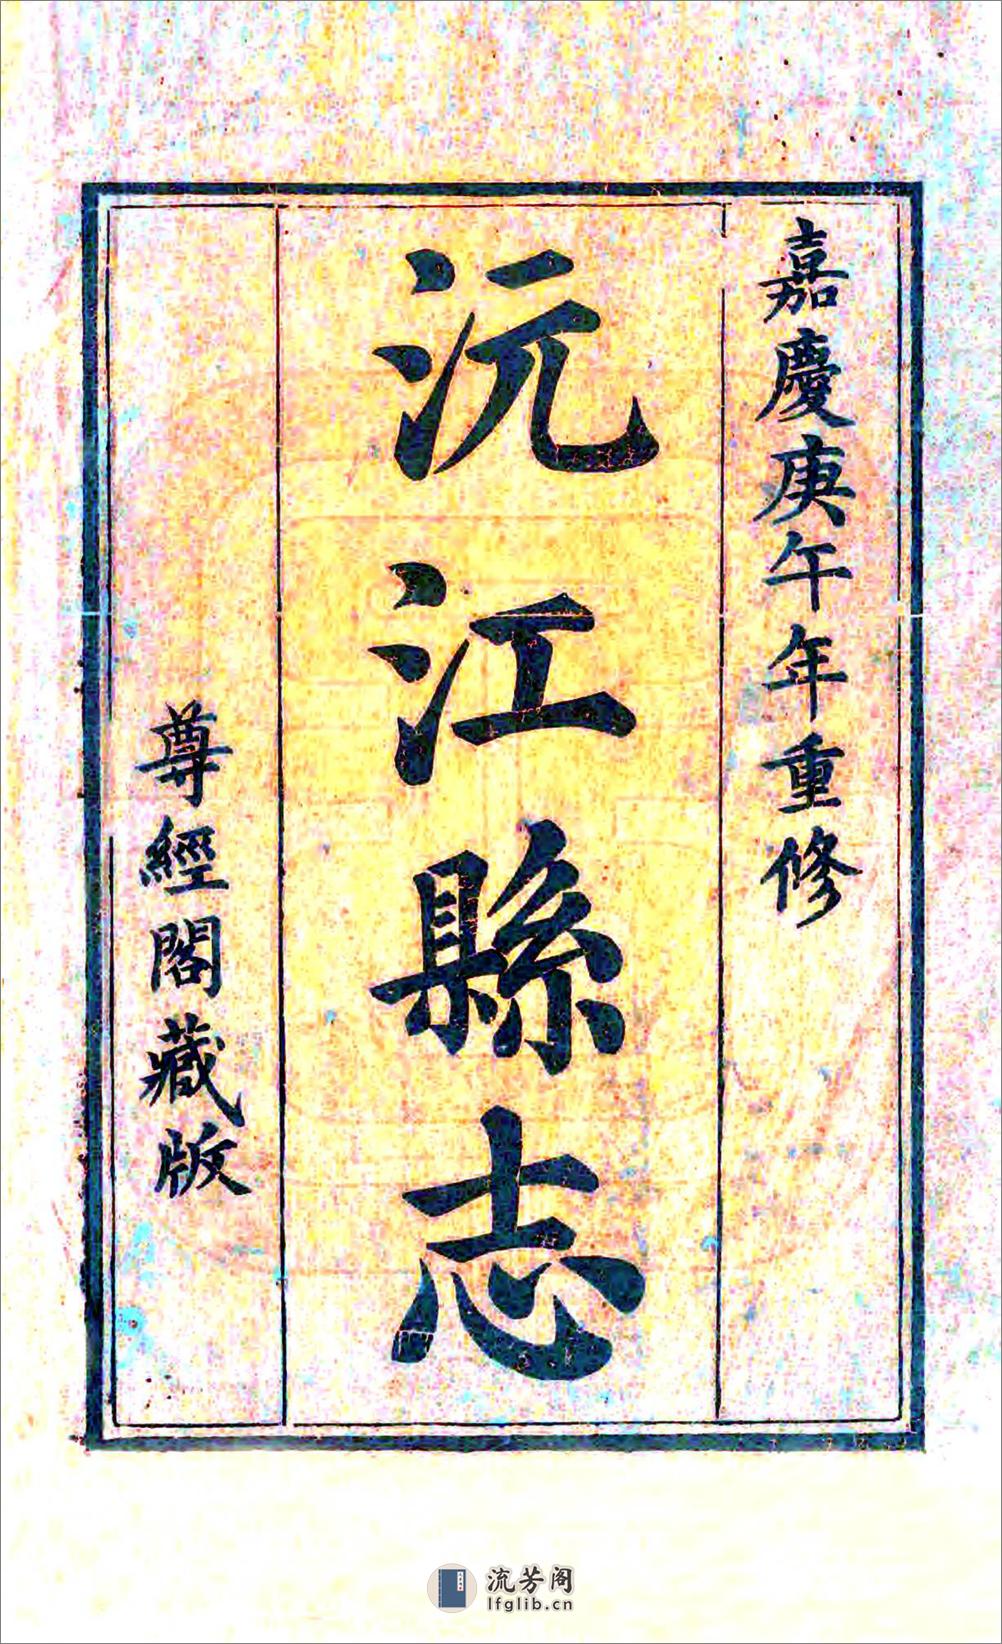 嘉慶庚午年重修
沅江縣志
尊經閣藏版
流芳阁
lfglib.cn